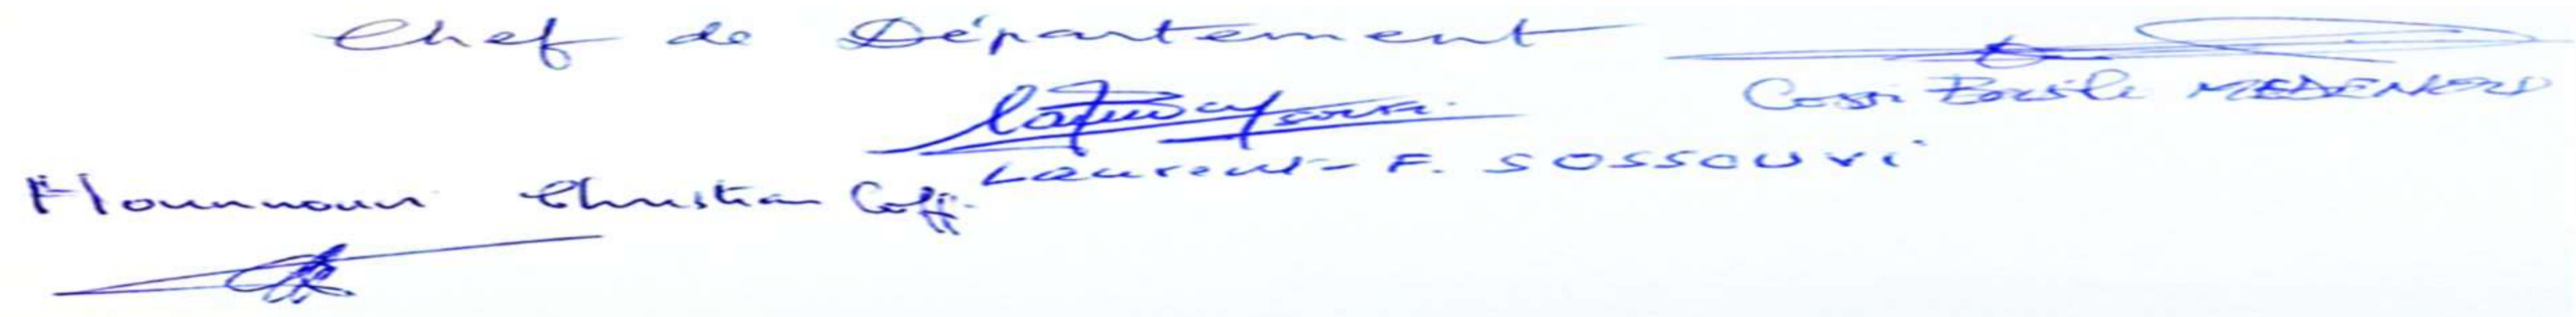 Chef de Département
Cossi Basile MEDENOU
Laurent F. SOSSOUVI
Hounnoun Christian Coffi